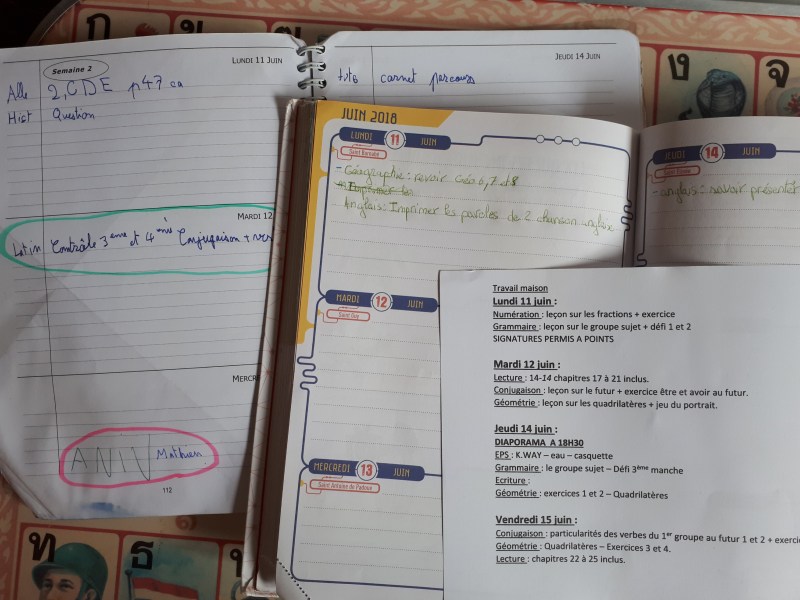 Semaine 2
LUNDI 11 JUIN
Alle 2, CDE p47 ca
Hist Question
MARDI 12
Latin Contrôle 3ème et 4ème Conjugaison +
MERCRE
ANIV Mathieu
112
JEUDI 14 JUIN
carnet parcours
JUIN 2018
LUNDI 11 JUIN
Saint Barnabé
- Géographie : revoir Géo 6, 7 et 8
Anglais : Imprimer les paroles de 2 chanson anglaise
MARDI 12 JUIN
Saint Guy
MERCREDI 13 JUIN
Saint Antoine de Padoue
JEUDI 14 JUIN
- anglais : savoir présenter
Travail maison
Lundi 11 juin :
Numération : leçon sur les fractions + exercice
Grammaire : leçon sur le groupe sujet + défi 1 et 2
SIGNATURES PERMIS A POINTS
Mardi 12 juin :
Lecture : 14-14 chapitres 17 à 21 inclus.
Conjugaison : leçon sur le futur + exercice être et avoir au futur.
Géométrie : leçon sur les quadrilatères + jeu du portrait.
Jeudi 14 juin :
DIAPORAMA A 18H30
EPS : K.WAY – eau – casquette
Grammaire : le groupe sujet – Défi 3ème manche
Ecriture :
Géométrie : exercices 1 et 2 – Quadrilatères
Vendredi 15 juin :
Conjugaison : particularités des verbes du 1er groupe au futur 1 et 2 + exerci
Géométrie : Quadrilatères – Exercices 3 et 4.
Lecture : chapitres 22 à 25 inclus.
ก
ข
ง
จ
ฑ
ธ